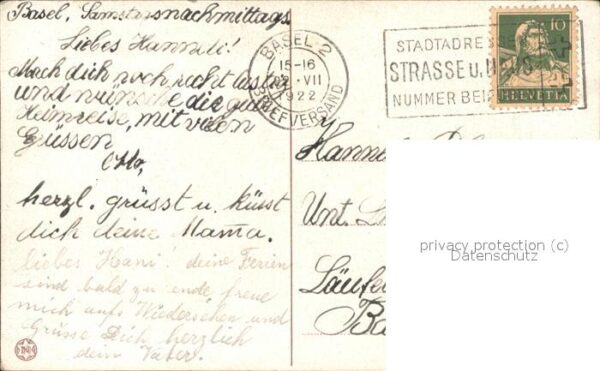 Basel, Samstagnachmittags.
Liebes Hanneli!
Mach dich noch recht lustig
und wünsche dir gute
Heimreise, mit vielen
Grüssen
Otto,
herzl. grüsst u. küsst
dich deine Mama.
liebes Hani! deine Ferien
sind bald zu ende freue
mich aufs Wiedersehen und
Grüsse Dich herzlich
dein Vater.
BASEL 2
15-16
22. VII
1922
BRIEFVERSAND
STADTADRE
STRASSE u.
NUMMER BEI
10
HELVETIA
Hann
Unt.
Läufel
Ba
privacy protection (c)
Datenschutz